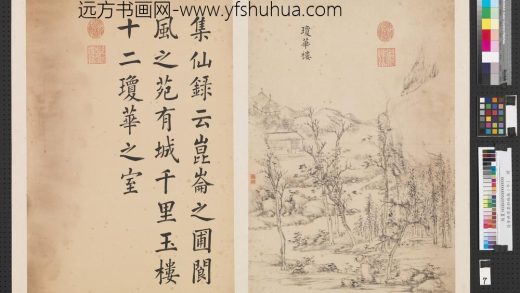 远方书画网-www.yfshuhua.com
瓊華樓
集仙錄云崑崙之圃閬
風之苑有城千里玉樓
十二瓊華之室
7